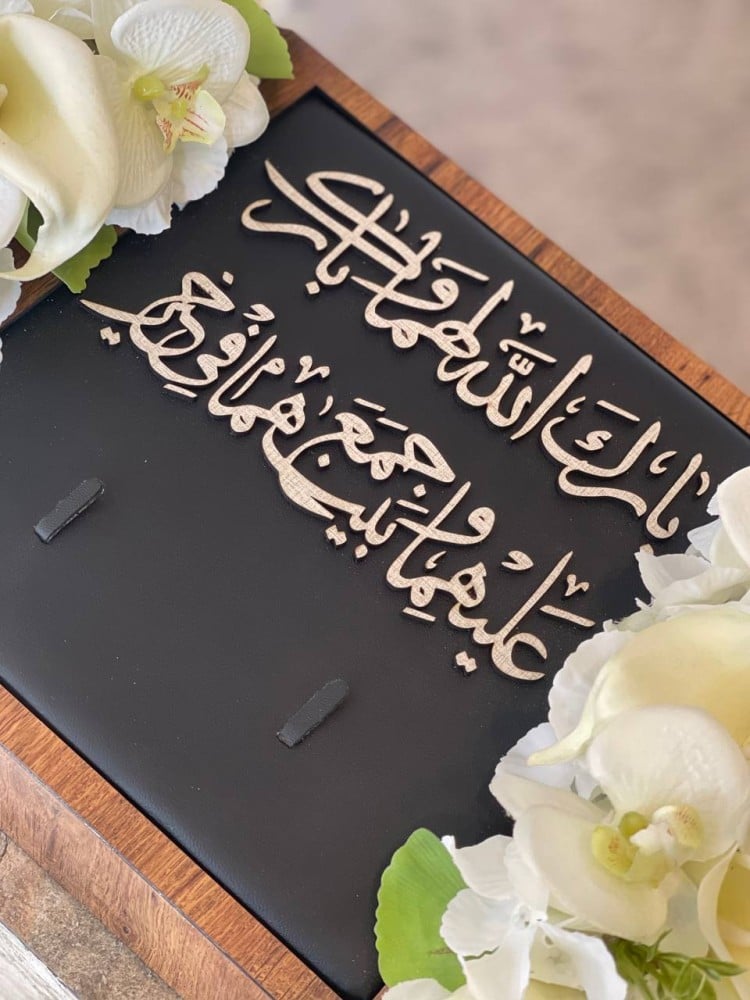 بَارَكَ اللّٰهُ لَهُمَا وَبَارَكَ
عَلَيْهِمَا وَجَمَعَ بَيْنَهُمَا فِي خَيْرٍ